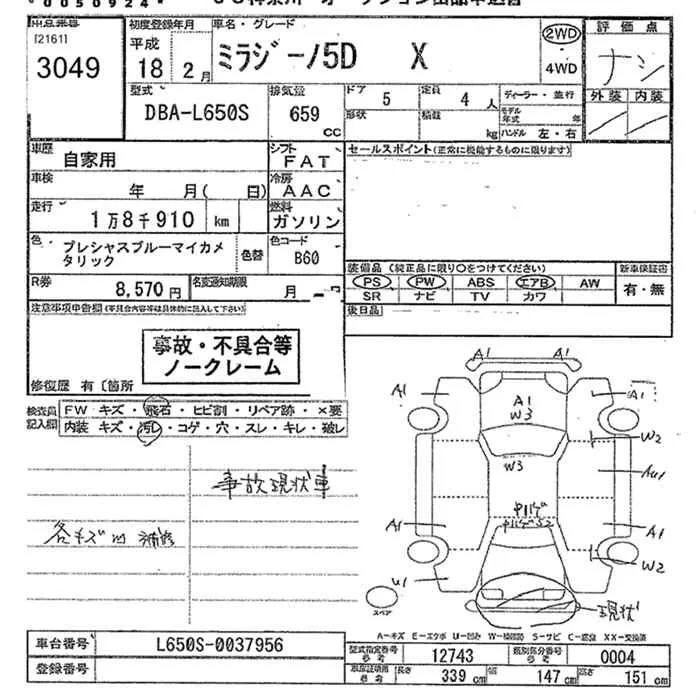 *0050924*
出品番号 初度登録年月 車名・グレード 評価点
[2161] 3049 平成 18 2月 ミラジーノ5D X 2WD ナシ
4WD
外装 内装
型式 DBA-L650S 排気量 659 CC ドア 5 定員 4人 ディーラー・並行
形状 積載 kg モデル年式 年
ハンドル 左・右
車歴 自家用 シフト FAT セールスポイント (正常に機能するものに限ります)
車検 年 月( 日) 冷房 AAC
走行 1万8千910 km 燃料 ガソリン
色 プレシャスブルーマイカメタリック 色替 色コード B60
装備品 (純正品に限り○をつけてください) 新車保証書
R券 8,570円 名変通知期限 月
PS PW ABS エアB AW 有・無
SR ナビ TV カワ
注意事項申告欄(不具合内容等は具体的に記入して下さい) 後日品
事故・不具合等
ノークレーム
修復歴 有〔箇所
検査員記入欄 FW キズ・飛石・ヒビ割・リペア跡・×要
内装 キズ・汚レ・コゲ・穴・スレ・キレ・破レ
事故現状車
各キズ凹 補修
A1 A1
A1 A1 A1
W3
W2
W3
AU1
A1 A1
W2
U1
現状
スペア
A-キズ E-エクボ U-凹み W-補修跡 S-サビ C-腐蝕 XX-交換済
車台番号 L650S-0037956 型式指定番号 参考 12743 類別区分番号 参考 0004
登録番号 長さ 339 cm 幅 147 cm 高さ 151 cm